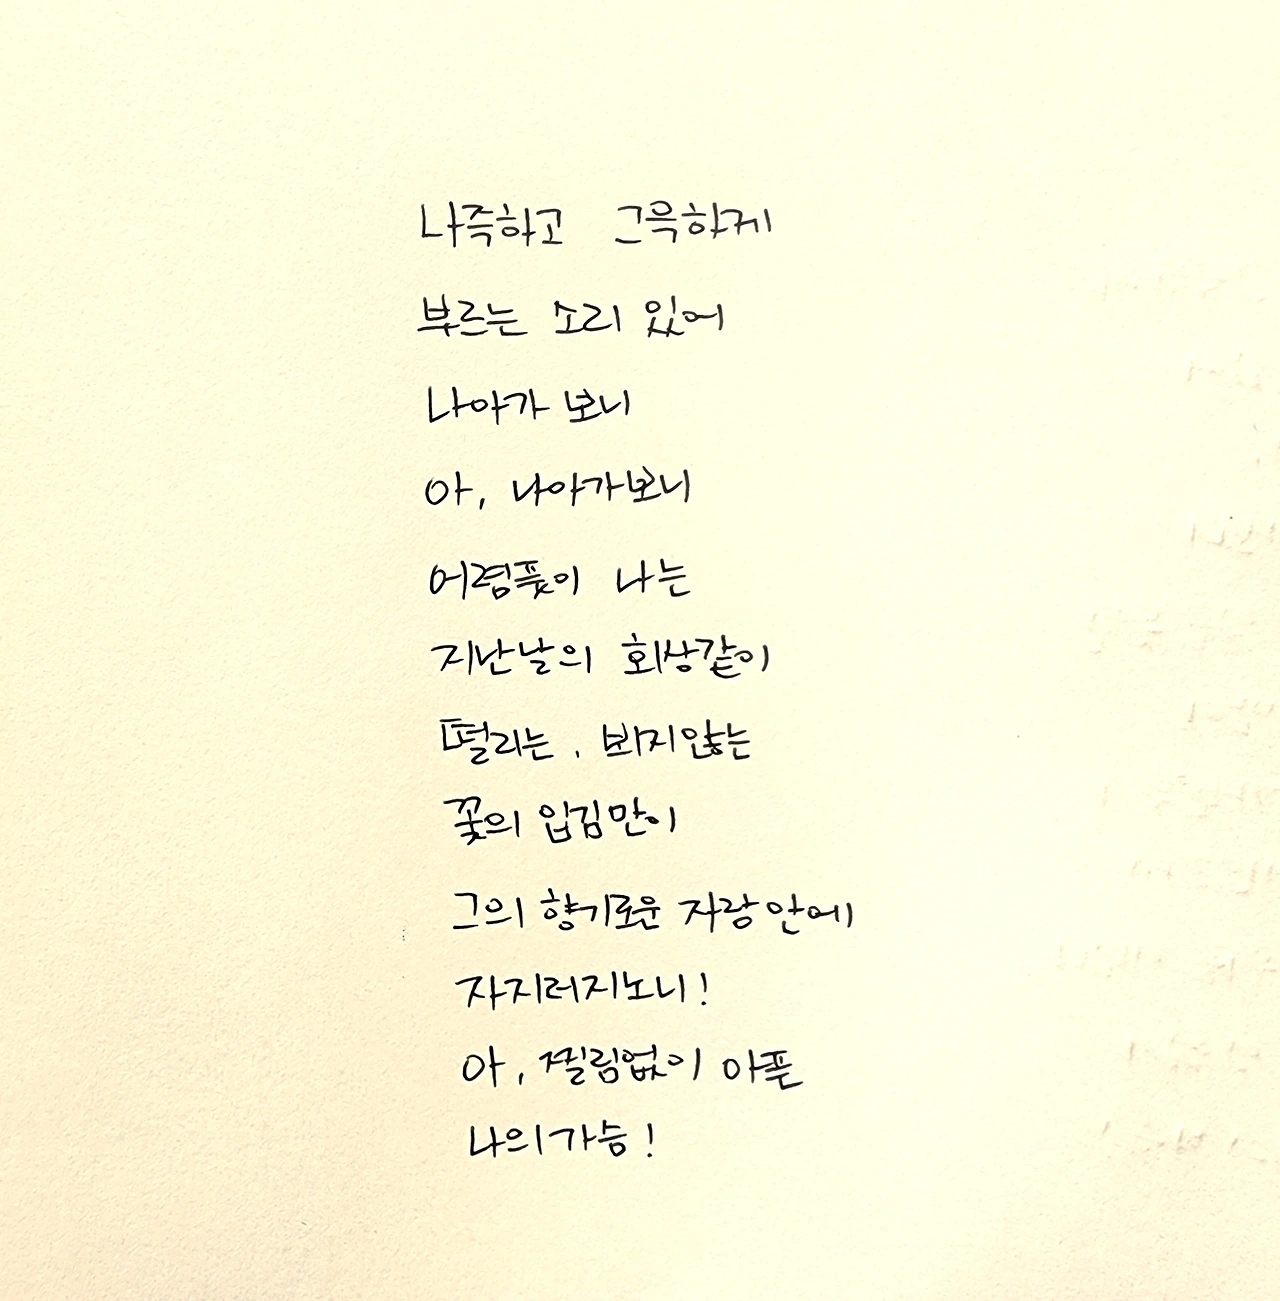 나즉하고 그윽하게
부르는 소리 있어
나아가 보니
아, 나아가보니
어렴풋이 나는
지난날의 회상같이
떨리는, 뵈지않는
꽃의 입김만이
그의 향기로운 자랑안에
자지러지노니!
아, 찔림없이 아픈
나의가슴!